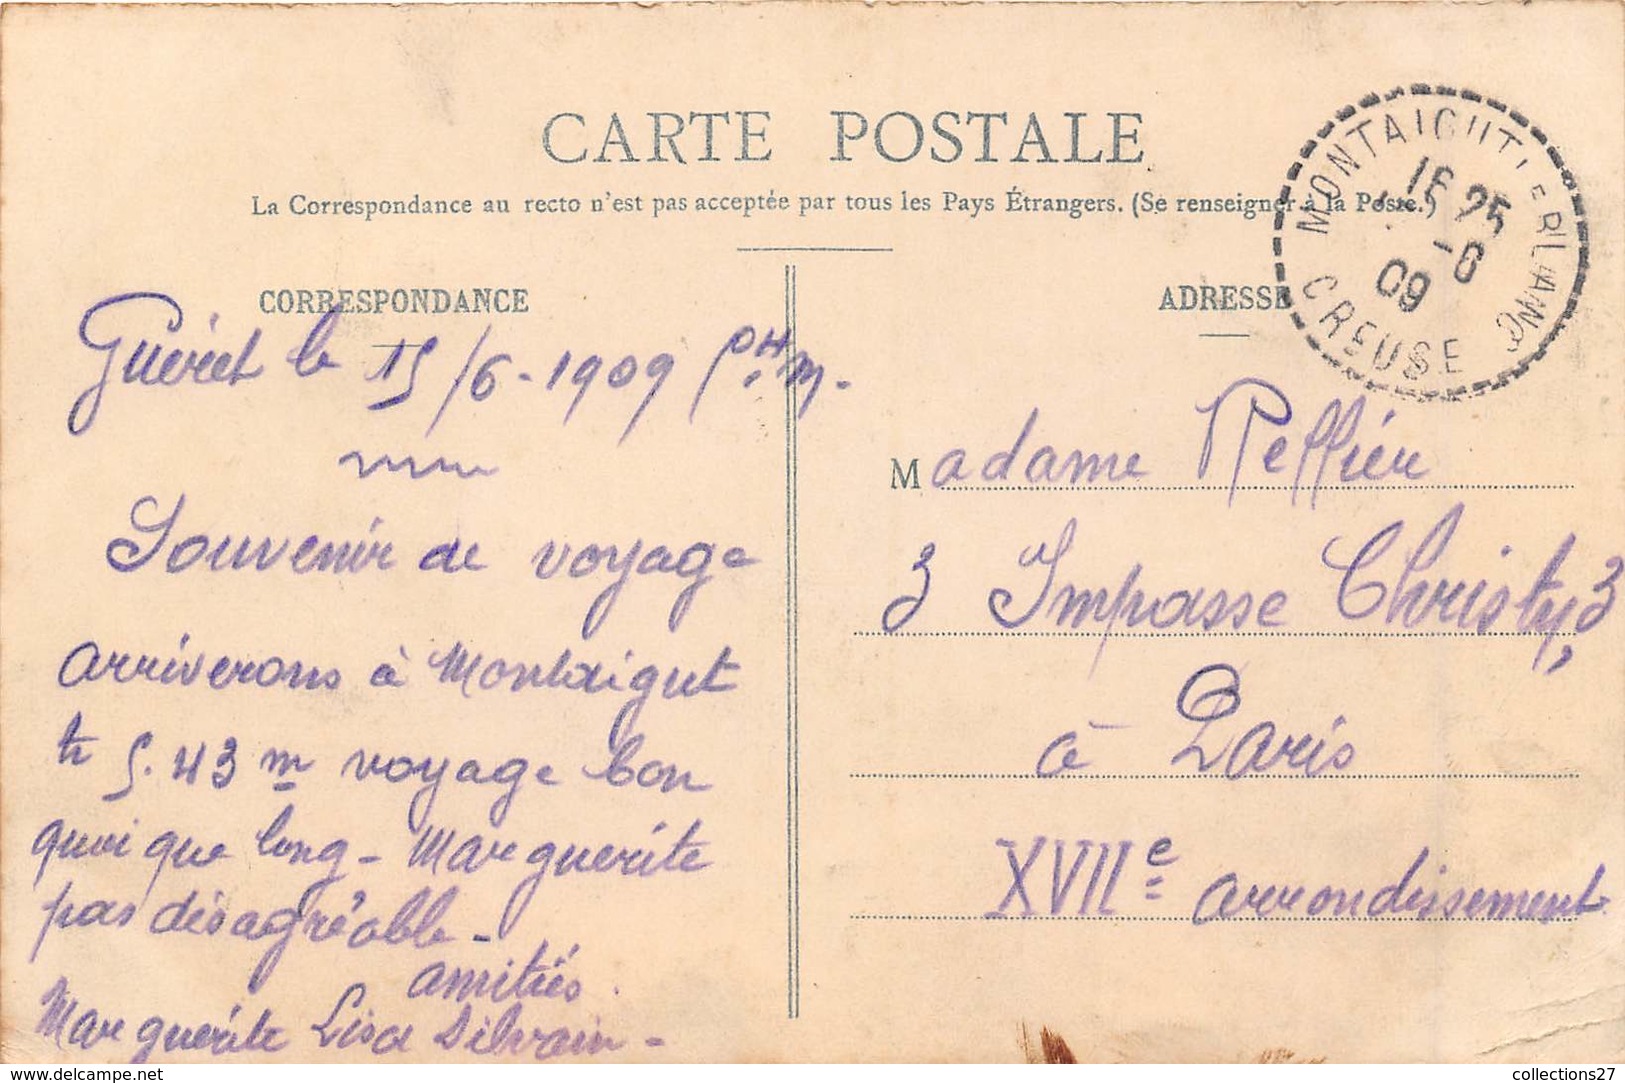 CARTE POSTALE
La Correspondance au recto n'est pas acceptée par tous les Pays Étrangers. (Se renseigner à la Poste.)
CORRESPONDANCE
Guéret le 15/6-1909
Souvenir de voyage
arriverons à Montaigut
5.43 m voyage bon
quoi que long - Marguerite
pas désagréable -
amitiés.
Marguerite Lisa Silvain -
ADRESSE
MONTAIGUT LE BLANC
16 25
-6
09
CREUSE
Madame
3 Impasse Christy, 3
à Paris
XVIIe arrondissement
collections27
https://www.delcampe.net